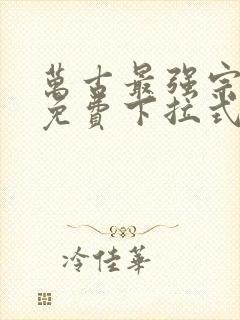 萬古最强宗
免費下拉式
冷佳華